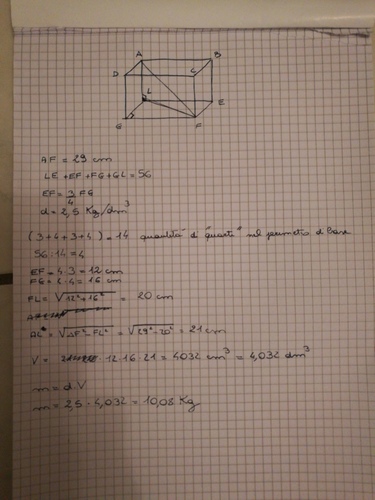 A B
D C
L E
G F
AF = 29 cm
LE + EF + FG + GL = 56
EF = 3/4 FG
d = 2,5 Kg/dm³
(3+4+3+4) = 14 quantità di "quarti" nel perimetro di base
56 : 14 = 4
EF = 4 · 3 = 12 cm
FG = 4 · 4 = 16 cm
FL = √12² + 16² = 20 cm
AL = √AF² - FL² = √29² - 20² = 21 cm
V = 12 · 16 · 21 = 4032 cm³ = 4,032 dm³
m = d · V
m = 2,5 · 4,032 = 10,08 Kg